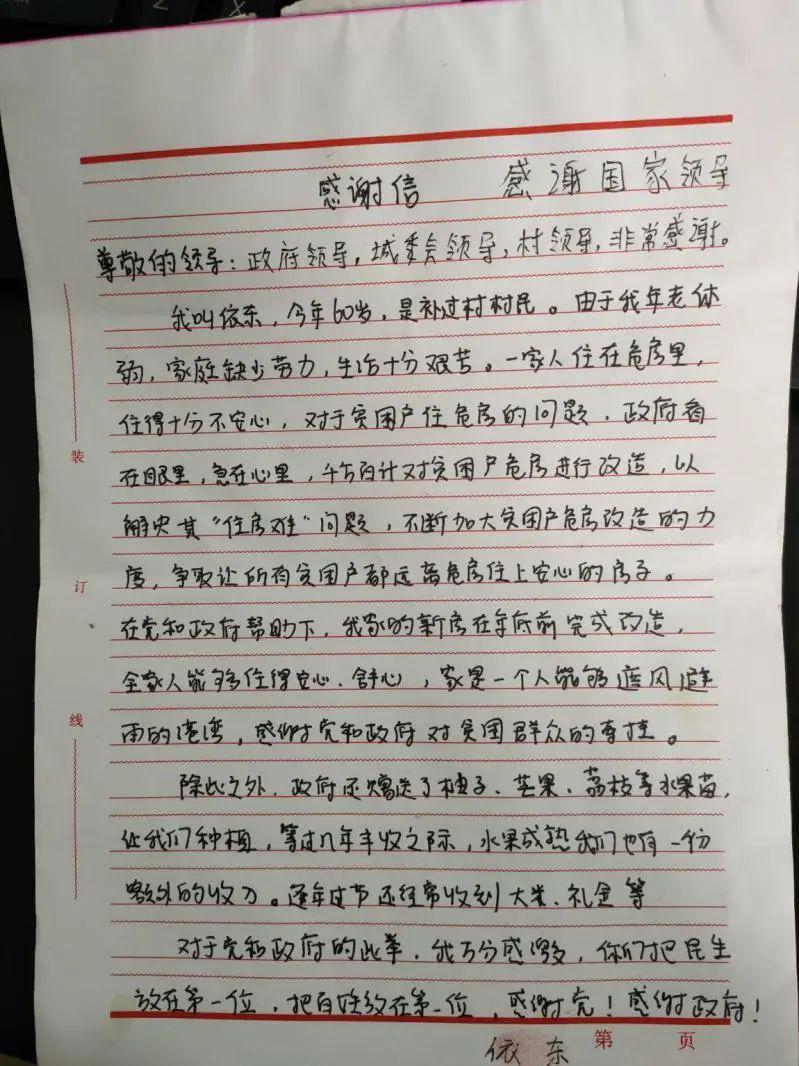 感谢信 感谢国家领导
尊敬的领导：政府领导，城委会领导，村领导，非常感谢。
我叫依东，今年60岁，是补过村村民。由于我年老体
弱，家庭缺少劳力，生活十分艰苦。一家人住在危房里，
住得十分不安心，对于贫困户住危房的问题，政府看
在眼里，急在心里，千方百计对贫困户危房进行改造，以
解决其“住房难”问题，不断加大贫困户危房改造的力
度，争取让所有贫困户都远离危房住上安心的房子。
在党和政府帮助下，我家的新房在年底前完成改造，
全家人能够住得安心、舒心，家是一个人能够遮风避
雨的港湾，感谢党和政府对贫困群众的支持。
除此之外，政府还赠送了柚子、芒果、荔枝等水果苗，
让我们种植，等过几年丰收之际，水果成熟我们也有一份
额外的收入。逢年过节还经常收到大米、礼金等
对于党和政府的此举，我万分感激，你们把民生
放在第一位，把百姓放在第一位，感谢党！感谢政府！
依东
第 页
装
订
线